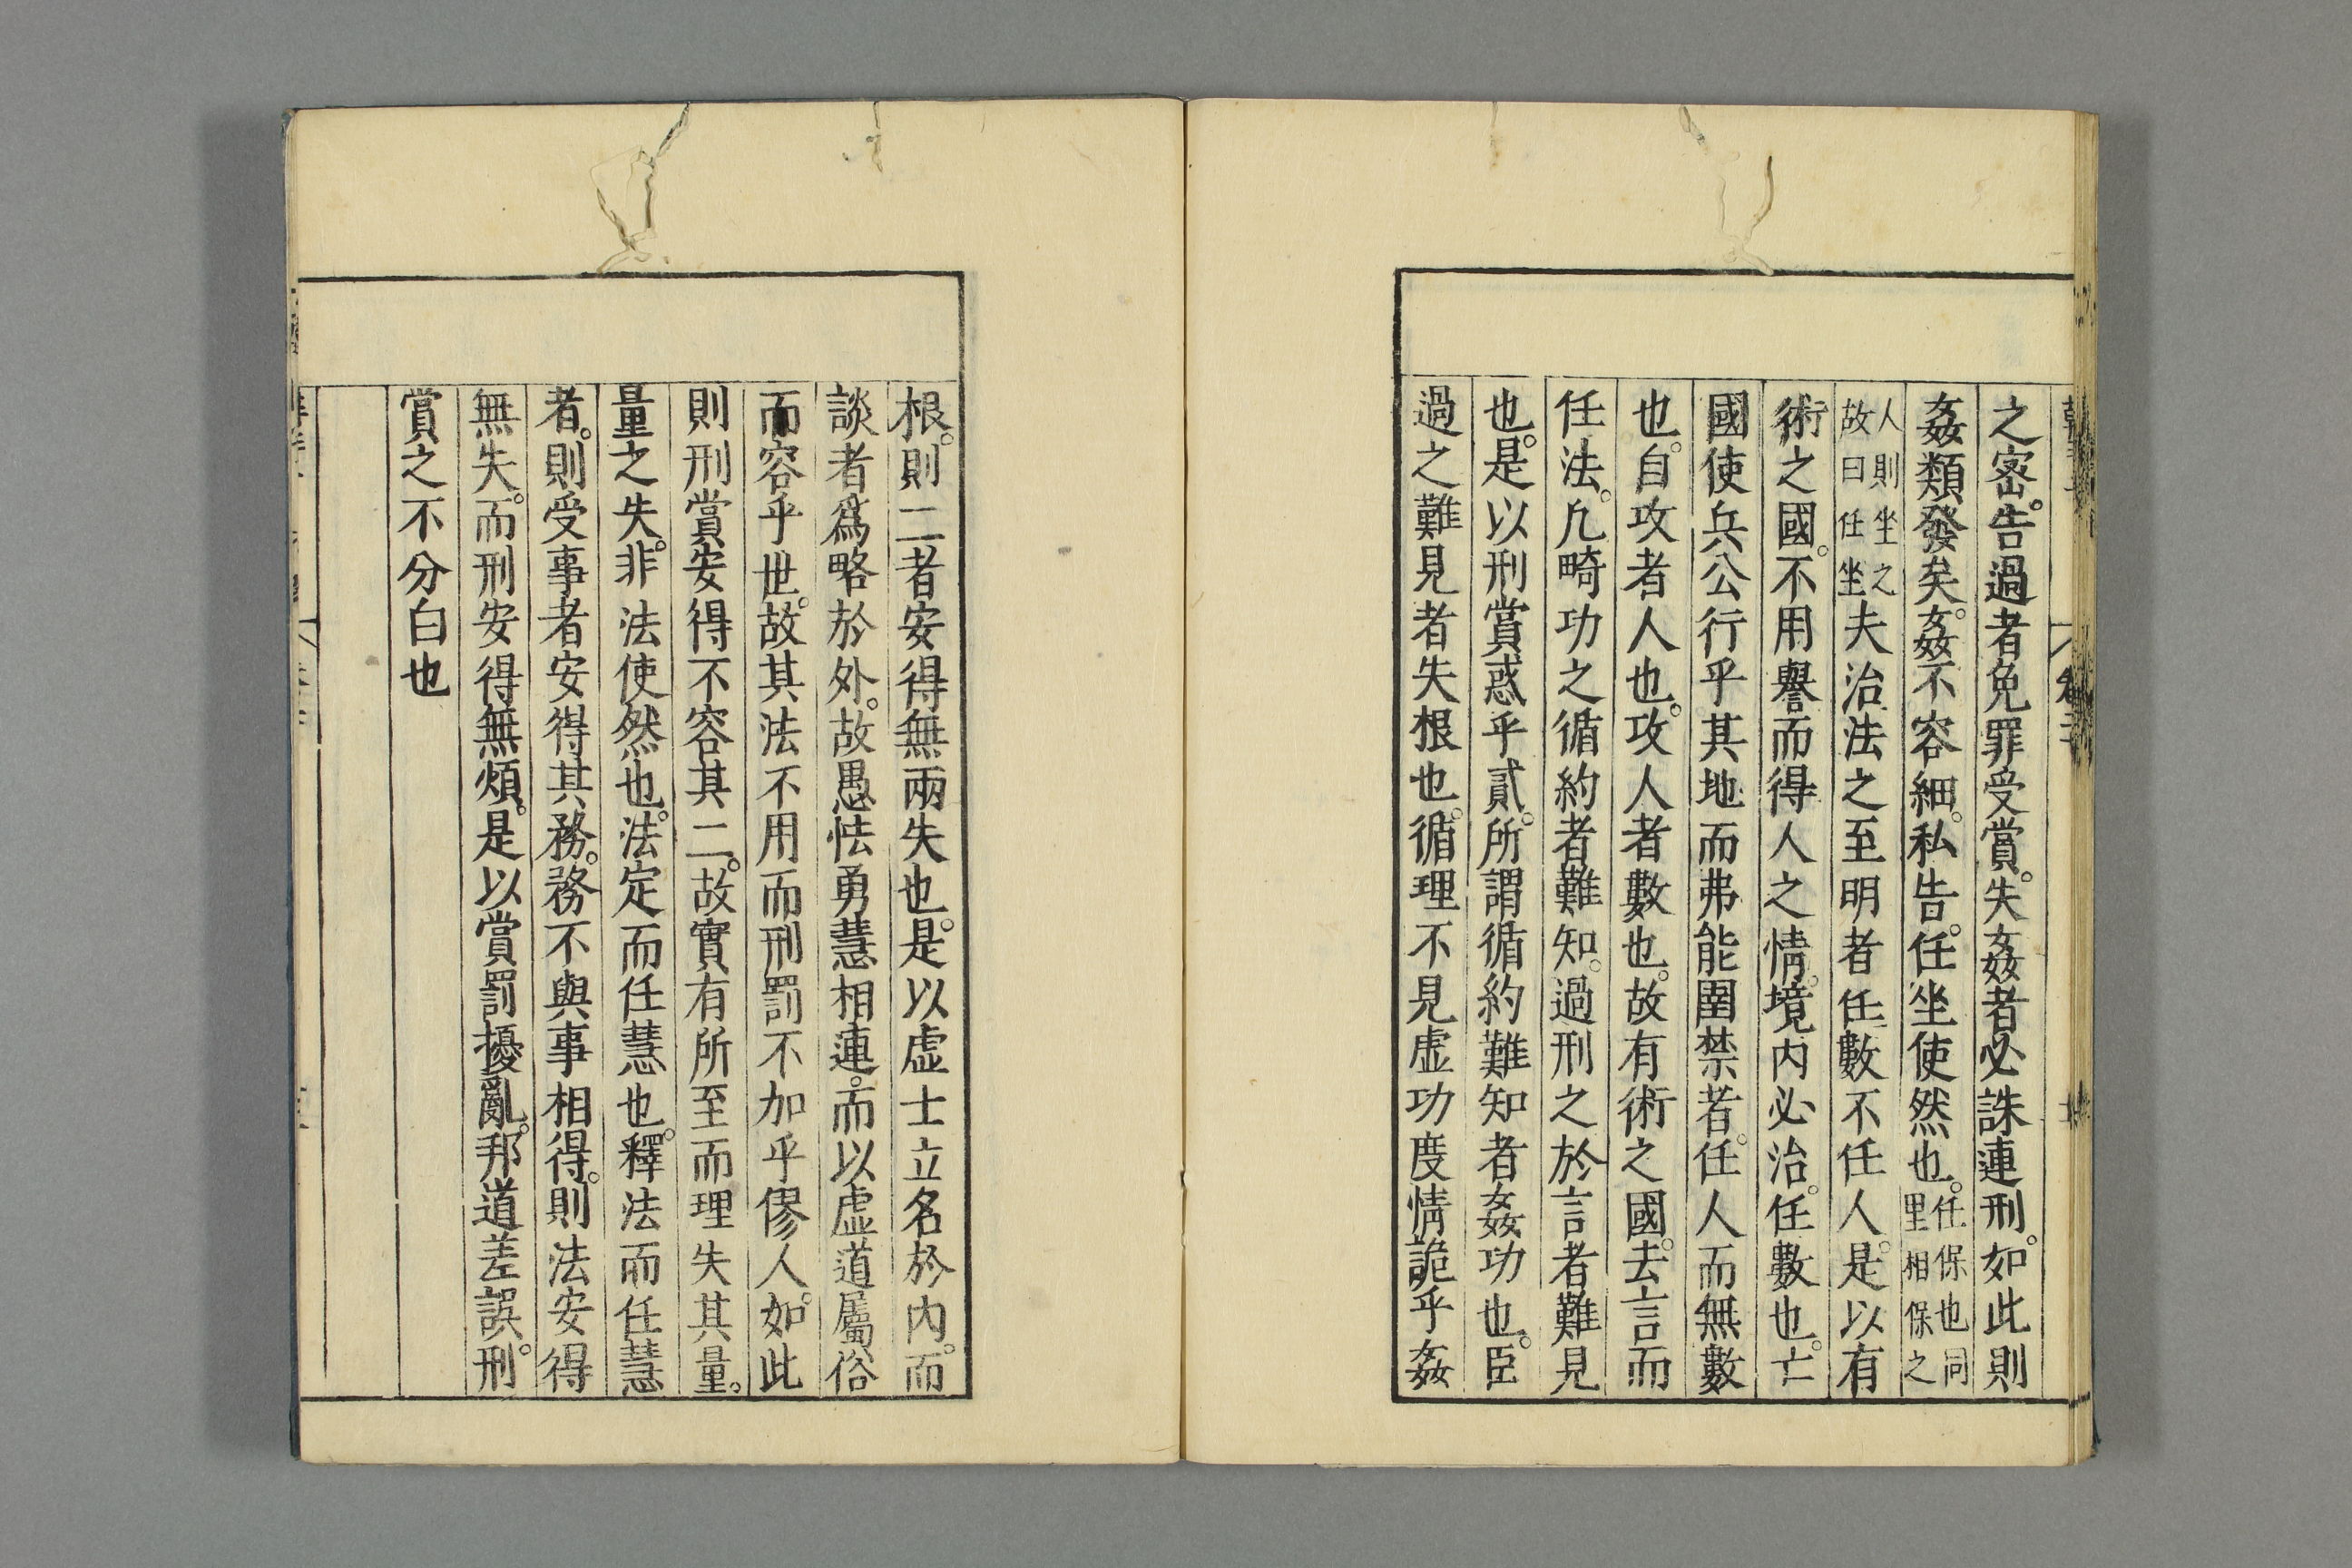 之密。告過者免罪受賞。失姦者必誅連刑。如此則
姦類發矣。姦不容細。私告。任坐使然也。任保也同里相保之
人則坐之故曰任坐夫治法之至明者任數不任人。是以有
術之國。不用譽而得人之情。境內必治。任數也。亡
國使兵公行乎其地而弗能圉禁者。任人而無數
也。自攻者人也。攻人者數也。故有術之國。去言而
任法。凢畸功之循約者難知。過刑之於言者難見
也。是以刑賞惑乎貳。所謂循約難知者姦功也。臣
過之難見者失根也。循理不見虛功度情詭乎姦
根。則二者安得無兩失也。是以虛士立名於內。而
談者爲略於外。故愚怯勇慧相連。而以虛道屬俗
而容乎世。故其法不用而刑罰不加乎僇人。如此
則刑賞安得不容其二。故實有所至而理失其量。
量之失。非法使然也。法定而任慧也。釋法而任慧
者。則受事者安得其務。務不與事相得。則法安得
無失。而刑安得無煩。是以賞罰擾亂。邦道差誤。刑
賞之不分白也